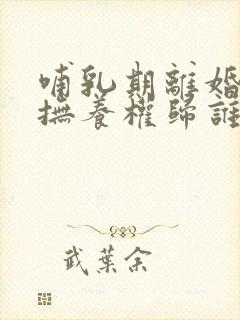 哺乳期離婚
撫養權歸誰
武葉余